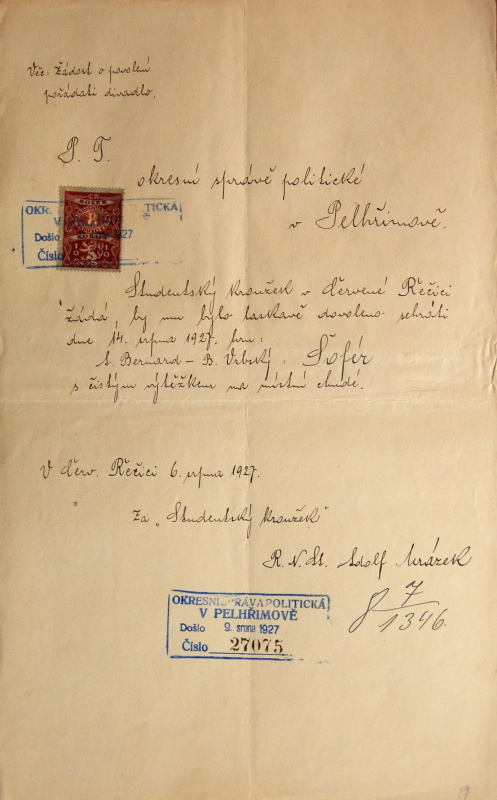 Věc: Žádost o povolení
pořádati divadlo.
P. T.
okresní správě politické
v Pelhřimově.
OKR. TICKÁ
V
Došlo 1927
Číslo
KOLEK
Studentský kroužek v Červené Řečici
žádá, by mu bylo laskavě dovoleno sehráti
dne 14. srpna 1927. hru:
t. Bernard – B. Vrbský: Šofér
s čistým výtěžkem na místní chudé.
V Červ. Řečici 6. srpna 1927.
Za „Studentský kroužek"
R. N. St. Adolf Mrázek
7
1346.
OKRESNÍ SPRÁVA POLITICKÁ
V PELHŘIMOVĚ
Došlo 9. srpna 1927
Číslo 27075